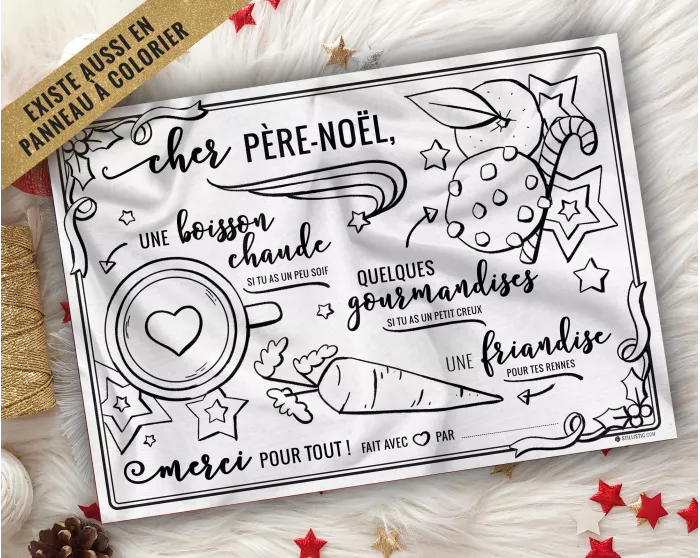 EXISTE AUSSI EN
PANNEAU À COLORIER
cher PÈRE-NOËL,
UNE boisson
chaude
SI TU AS UN PEU SOIF
QUELQUES
gourmandises
SI TU AS UN PETIT CREUX
UNE friandise
POUR TES RENNES
merci POUR TOUT ! FAIT AVEC PAR
STILLISTIC.COM